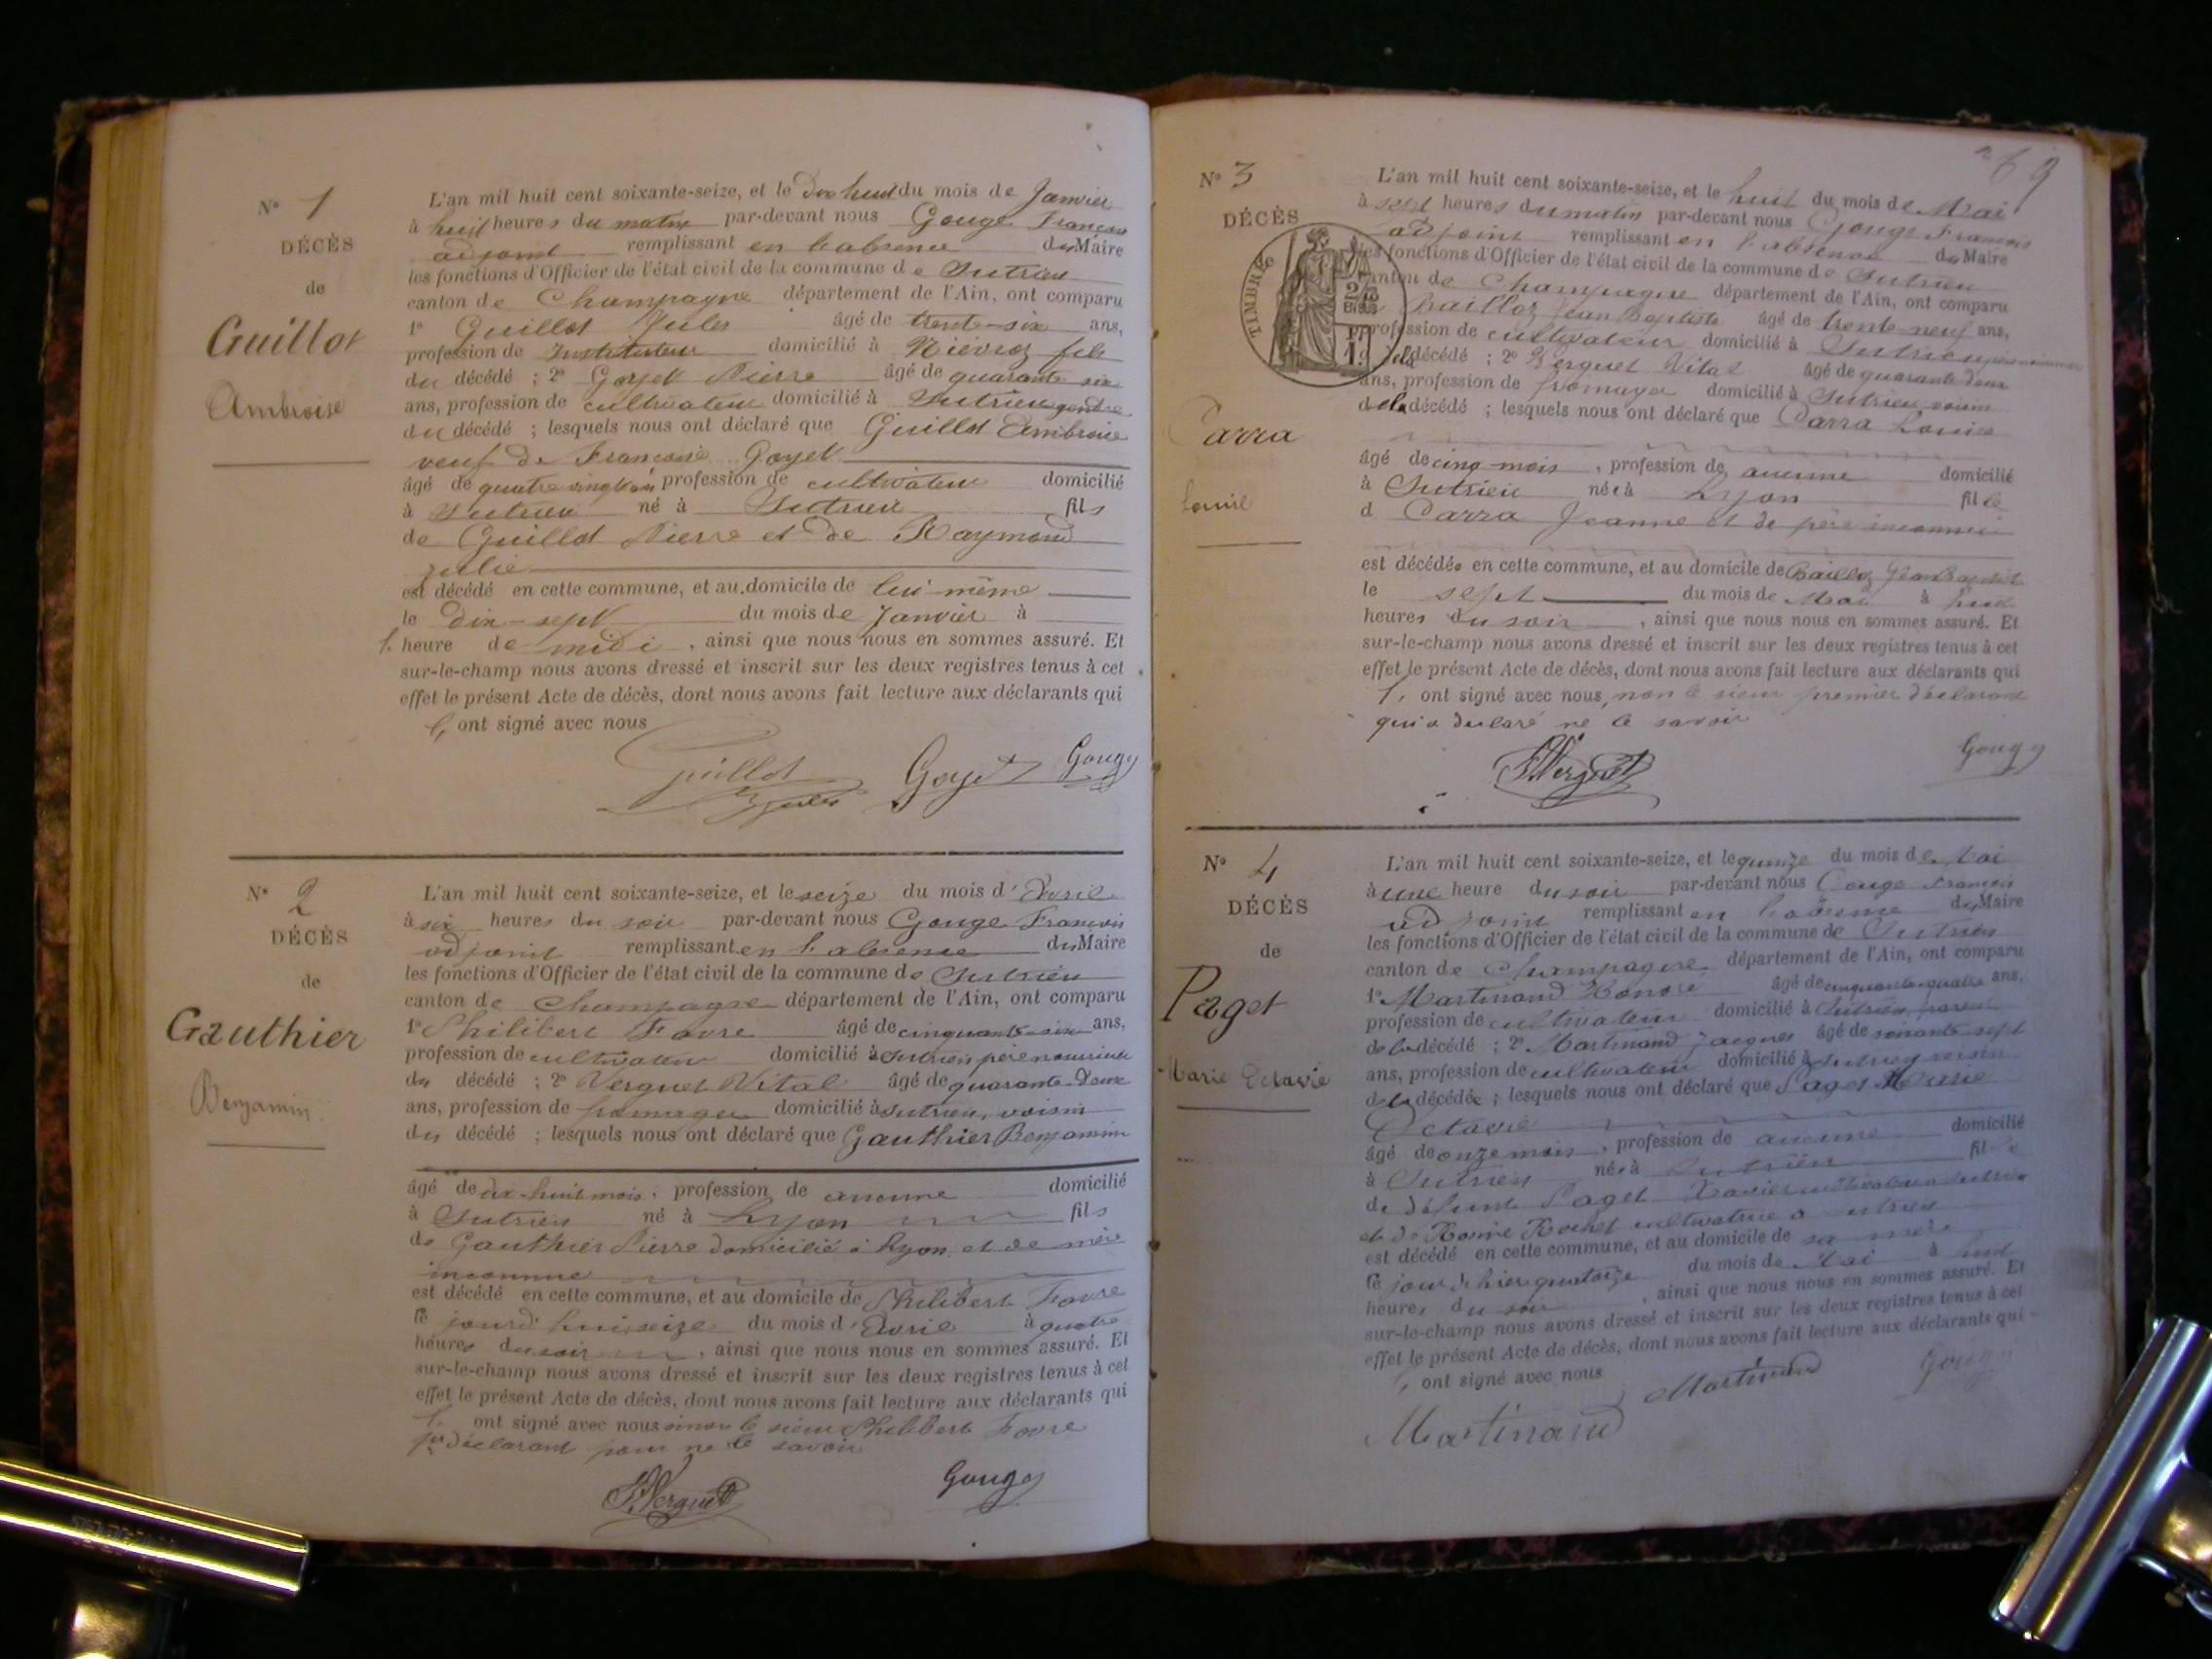 N° 1
DÉCÈS
de
Guillot
Ambroise
L'an mil huit cent soixante-seize, et le dix huit du mois de Janvier
à huit heures du matin par-devant nous Gouge François
adjoint remplissant en l'absence du Maire
les fonctions d'Officier de l'état civil de la commune de Sutrieu
canton de Champagne département de l'Ain, ont comparu
1° Guillot Jules âgé de trente-six ans,
profession de Instituteur domicilié à Niévroz fils
du décédé ; 2° Goyet Pierre âgé de quarante six
ans, profession de cultivateur domicilié à Sutrieu gendre
du décédé ; lesquels nous ont déclaré que Guillot Ambroise
veuf de Françoise Goyet
âgé de quatre vingt profession de cultivateur domicilié
à Sutrieu né à Sutrieu fils
de Guillot Pierre et de Raymond
Julie
est décédé en cette commune, et au domicile de lui-même
le dix-sept du mois de Janvier à
1. heure de midi, ainsi que nous nous en sommes assuré. Et
sur-le-champ nous avons dressé et inscrit sur les deux registres tenus à cet
effet le présent Acte de décès, dont nous avons fait lecture aux déclarants qui
l, ont signé avec nous
Guillot Jules Goyet Gouge
N° 2
DÉCÈS
de
Gauthier
Benjamin
L'an mil huit cent soixante-seize, et le seize du mois d'Avril
à six heures du soir par-devant nous Gouge François
adjoint remplissant en l'absence du Maire
les fonctions d'Officier de l'état civil de la commune de Sutrieu
canton de Champagne département de l'Ain, ont comparu
1° Philibert Favre âgé de cinquante-six ans,
profession de cultivateur domicilié à Sutrieu père nourricier
du décédé ; 2° Verguet Vital âgé de quarante-deux
ans, profession de fromager domicilié à Sutrieu, voisin
du décédé ; lesquels nous ont déclaré que Gauthier Benjamin
âgé de dix-huit mois, profession de aucune domicilié
à Sutrieu né à Lyon fils
de Gauthier Pierre domicilié à Lyon et de mère
inconnue
est décédé en cette commune, et au domicile de Philibert Favre
le jourd'hui seize du mois d'Avril à quatre
heures du soir, ainsi que nous nous en sommes assuré. Et
sur-le-champ nous avons dressé et inscrit sur les deux registres tenus à cet
effet le présent Acte de décès, dont nous avons fait lecture aux déclarants qui
l, ont signé avec nous sinon le sieur Philibert Favre
1er déclarant pour ne le savoir
Verguet Gouge
269
N° 3
DÉCÈS
TIMBRE
Carra
Louise
L'an mil huit cent soixante-seize, et le huit du mois de Mai
à sept heures du matin par-devant nous Gouge François
adjoint remplissant en l'absence du Maire
les fonctions d'Officier de l'état civil de la commune de Sutrieu
canton de Champagne département de l'Ain, ont comparu
Bailloz Jean Baptiste âgé de trente-neuf ans,
profession de cultivateur domicilié à Sutrieu
de la décédé ; 2° Verguet Vital âgé de quarante deux
ans, profession de fromager domicilié à Sutrieu voisin
de la décédé ; lesquels nous ont déclaré que Carra Louise
âgé de cinq mois, profession de aucune domicilié
à Sutrieu née à Lyon fille
d Carra Jeanne et de père inconnu
est décédée en cette commune, et au domicile de Bailloz Jean Baptiste
le sept du mois de Mai à huit
heures du soir, ainsi que nous nous en sommes assuré. Et
sur-le-champ nous avons dressé et inscrit sur les deux registres tenus à cet
effet le présent Acte de décès, dont nous avons fait lecture aux déclarants qui
l, ont signé avec nous, non le sieur premier déclarant
qui a déclaré ne le savoir
Verguet Gouge
N° 4
DÉCÈS
de
Paget
Marie Octavie
L'an mil huit cent soixante-seize, et le quinze du mois de Mai
à une heure du soir par-devant nous Gouge François
adjoint remplissant en l'absence du Maire
les fonctions d'Officier de l'état civil de la commune de Sutrieu
canton de Champagne département de l'Ain, ont comparu
1° Martinand Honoré âgé de cinquante-quatre ans,
profession de cultivateur domicilié à Sutrieu, parent
de la décédé ; 2° Martinand Jacques âgé de soixante-sept
ans, profession de cultivateur domicilié à Sutrieu voisin
de la décédée ; lesquels nous ont déclaré que Paget Marie
Octavie
âgé de onze mois, profession de aucune domicilié
à Sutrieu née à Sutrieu fille
de défunt Paget Xavier cultivateur à Sutrieu
et de Rochet cultivatrice à Sutrieu
est décédé en cette commune, et au domicile de sa mère
le jour d'hier quatorze du mois de Mai à huit
heures du soir, ainsi que nous nous en sommes assuré. Et
sur-le-champ nous avons dressé et inscrit sur les deux registres tenus à cet
effet le présent Acte de décès, dont nous avons fait lecture aux déclarants qui
l, ont signé avec nous
Martinand Martinand Gouge